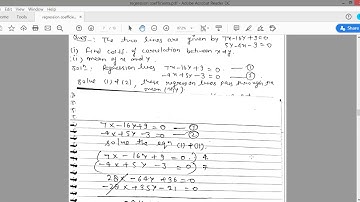 regression coefficient.pdf - Adobe Acrobat Reader DC
The two lines are given by 7x-16y+9=0
5y-4x-3=0
(i) Find coeff. of correlation between x & y.
(ii) mean of x and y.
Regression lines 7x-16y+9=0 — ①
-4x+5y-3=0 — ②
Solve (1) & (2), these regression lines pass through the
mean (x̄,ȳ)
7x-16y+9=0 — ①
-4x+5y-3=0 — ②
Solve the eqn (1) & (11).
(7x-16y+9=0.) 4
(-4x+5y-3=0) 7
28x-64y+36=0
-28x+35y-21=0